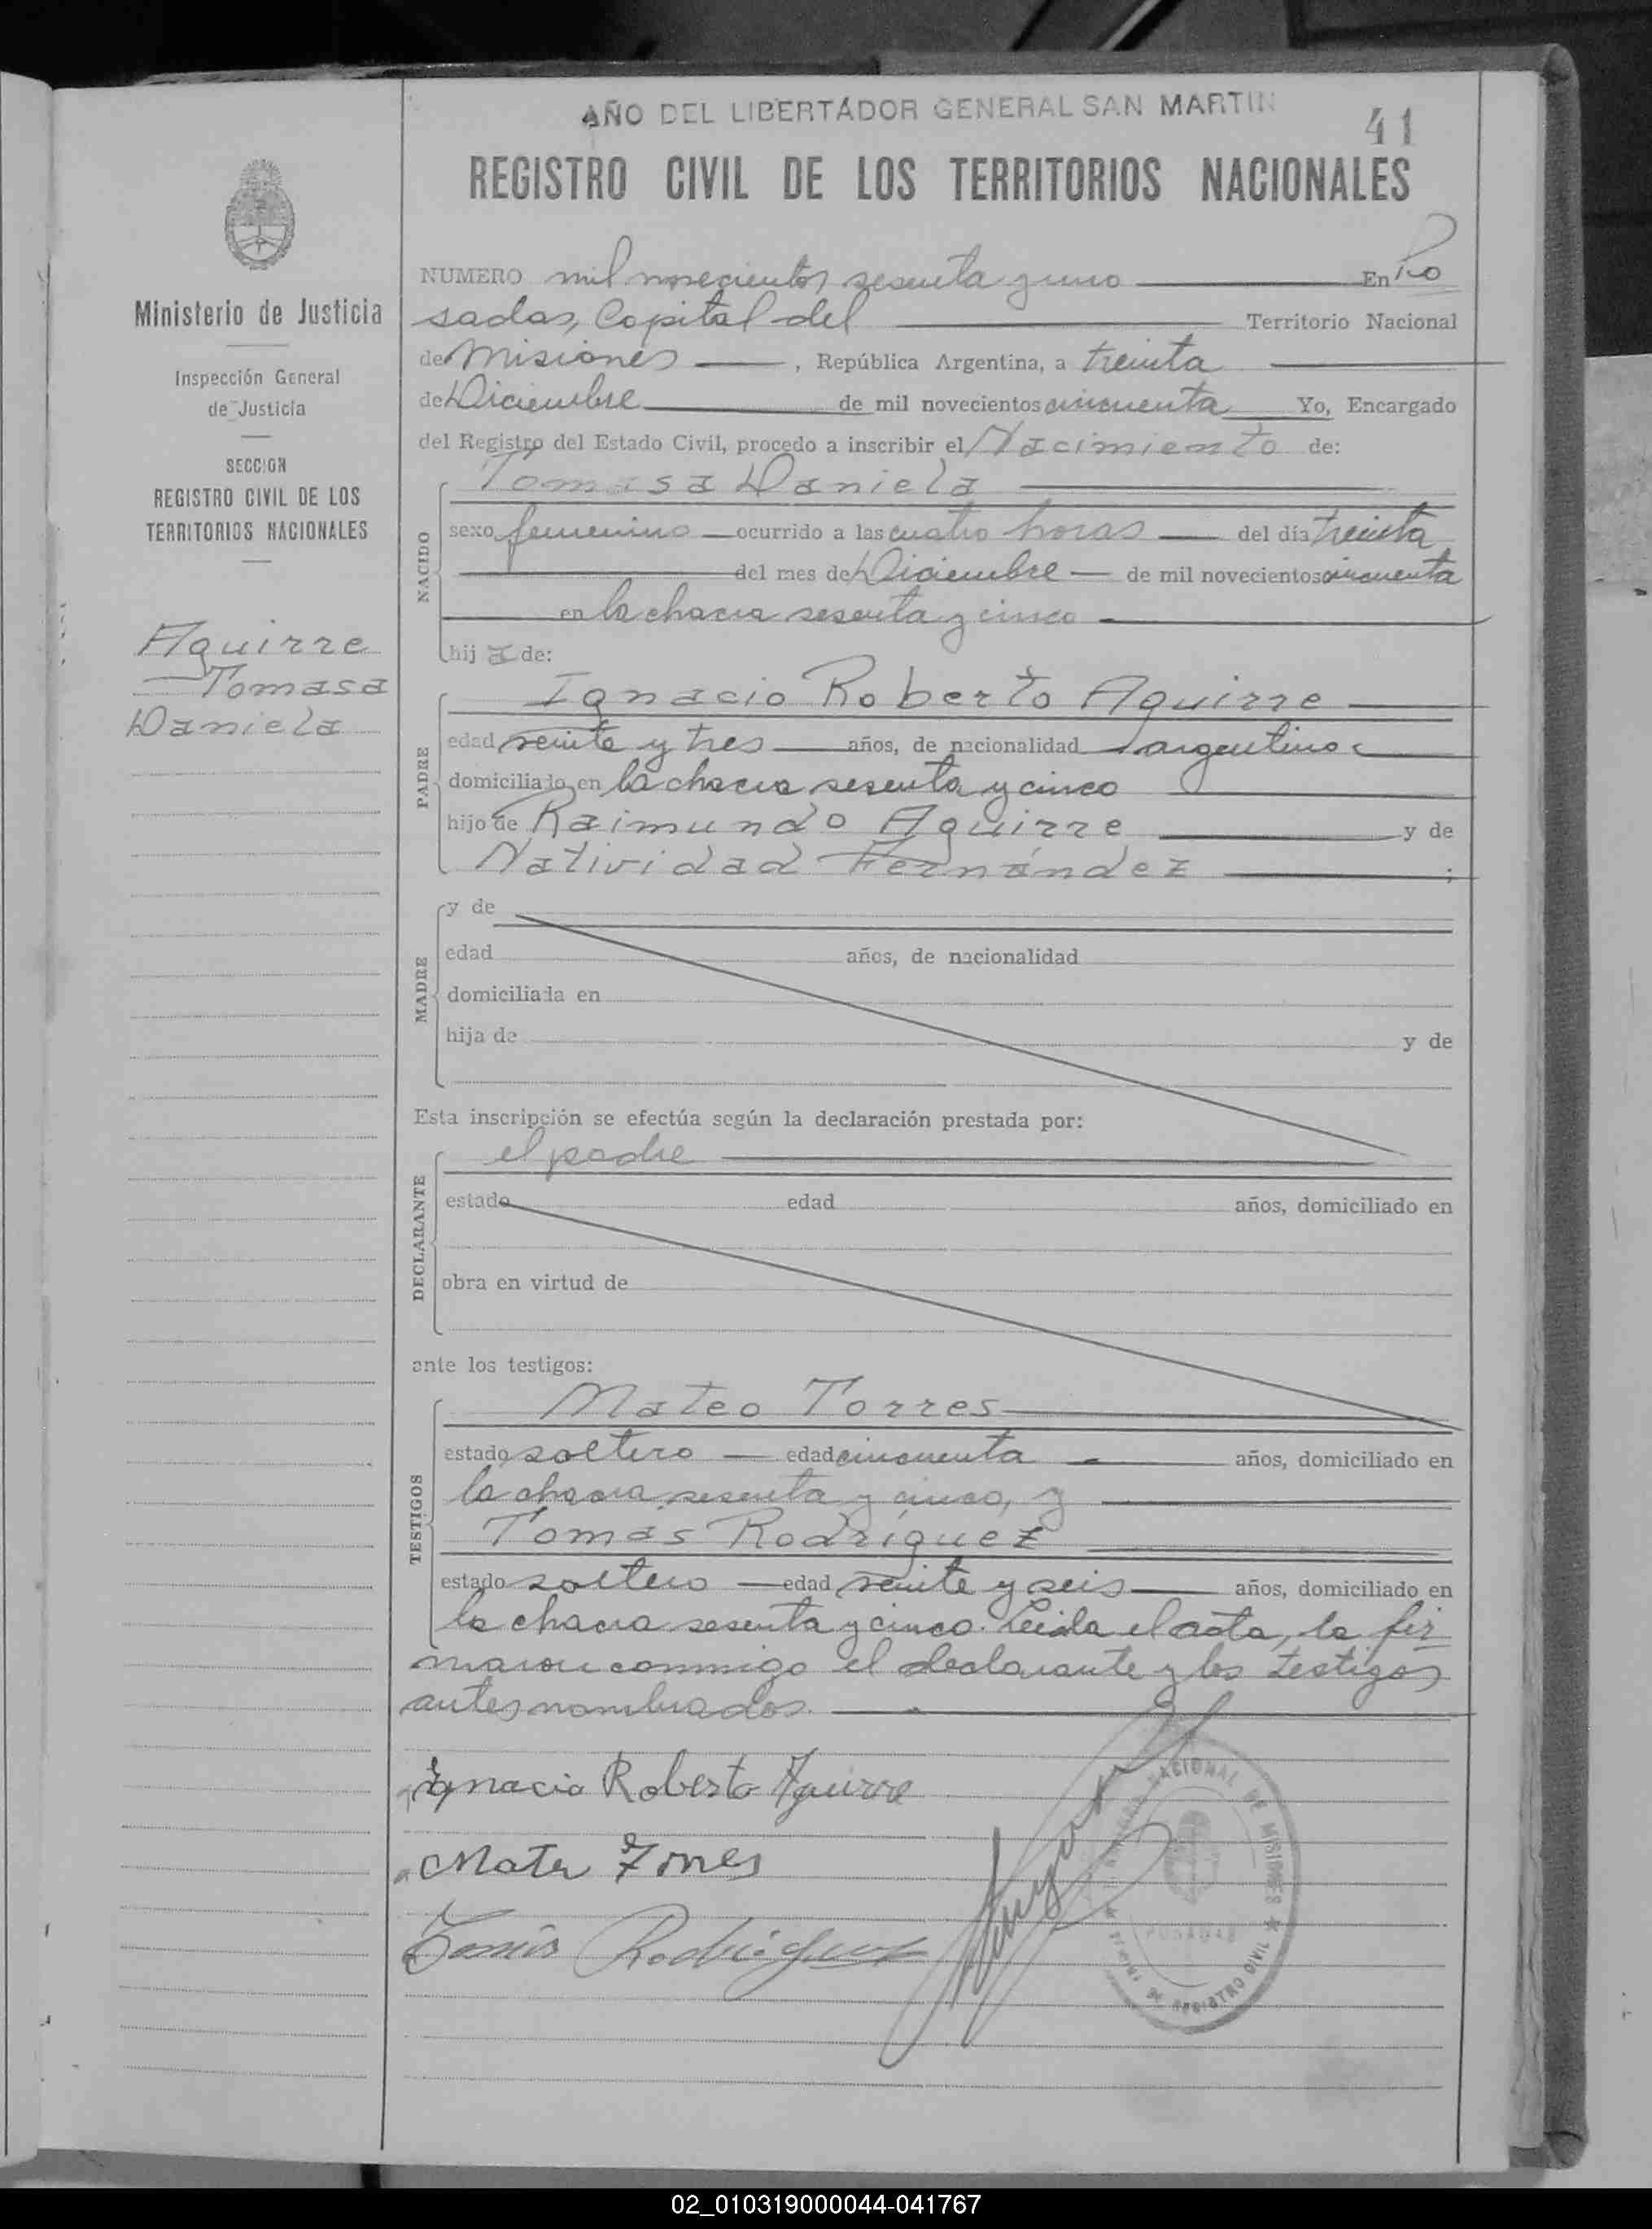 AÑO DEL LIBERTADOR GENERAL SAN MARTIN
41
REGISTRO CIVIL DE LOS TERRITORIOS NACIONALES
Ministerio de Justicia
Inspección General
de Justicia
SECCION
REGISTRO CIVIL DE LOS
TERRITORIOS NACIONALES
Aguirre
Tomasa
Daniela
NUMERO mil novecientos sesenta y uno En Po
sadas, Capital del Territorio Nacional
de Misiones, República Argentina, a treinta
de Diciembre de mil novecientos cincuenta Yo, Encargado
del Registro del Estado Civil, procedo a inscribir el Nacimiento de:
Tomasa Daniela
NACIDO
sexo femenino ocurrido a las cuatro horas del día treinta
del mes de Diciembre de mil novecientos cincuenta
en la chacra sesenta y cinco
hij a de:
Ignacio Roberto Aguirre
PADRE
edad veinte y tres años, de nacionalidad argentino
domiciliado en la chacra sesenta y cinco
hijo de Raimundo Aguirre y de
Natividad Fernández ;
MADRE
y de
edad años, de nacionalidad
domiciliada en
hija de y de
Esta inscripción se efectúa según la declaración prestada por:
el padre
DECLARANTE
estado edad años, domiciliado en
obra en virtud de
ante los testigos:
Mateo Torres
TESTIGOS
estado soltero edad cincuenta años, domiciliado en
la chacra sesenta y cinco, y
Tomás Rodríguez
estado soltero edad veinte y seis años, domiciliado en
la chacra sesenta y cinco. Leida el acta, la fir
maron conmigo el declarante y los testigos
antes nombrados.
Ignacio Roberto Aguirre
Mateo Torres
Tomás Rodríguez
NACIONAL DE MISIONES
POSADAS
REGISTRO CIVIL
02_010319000044-041767